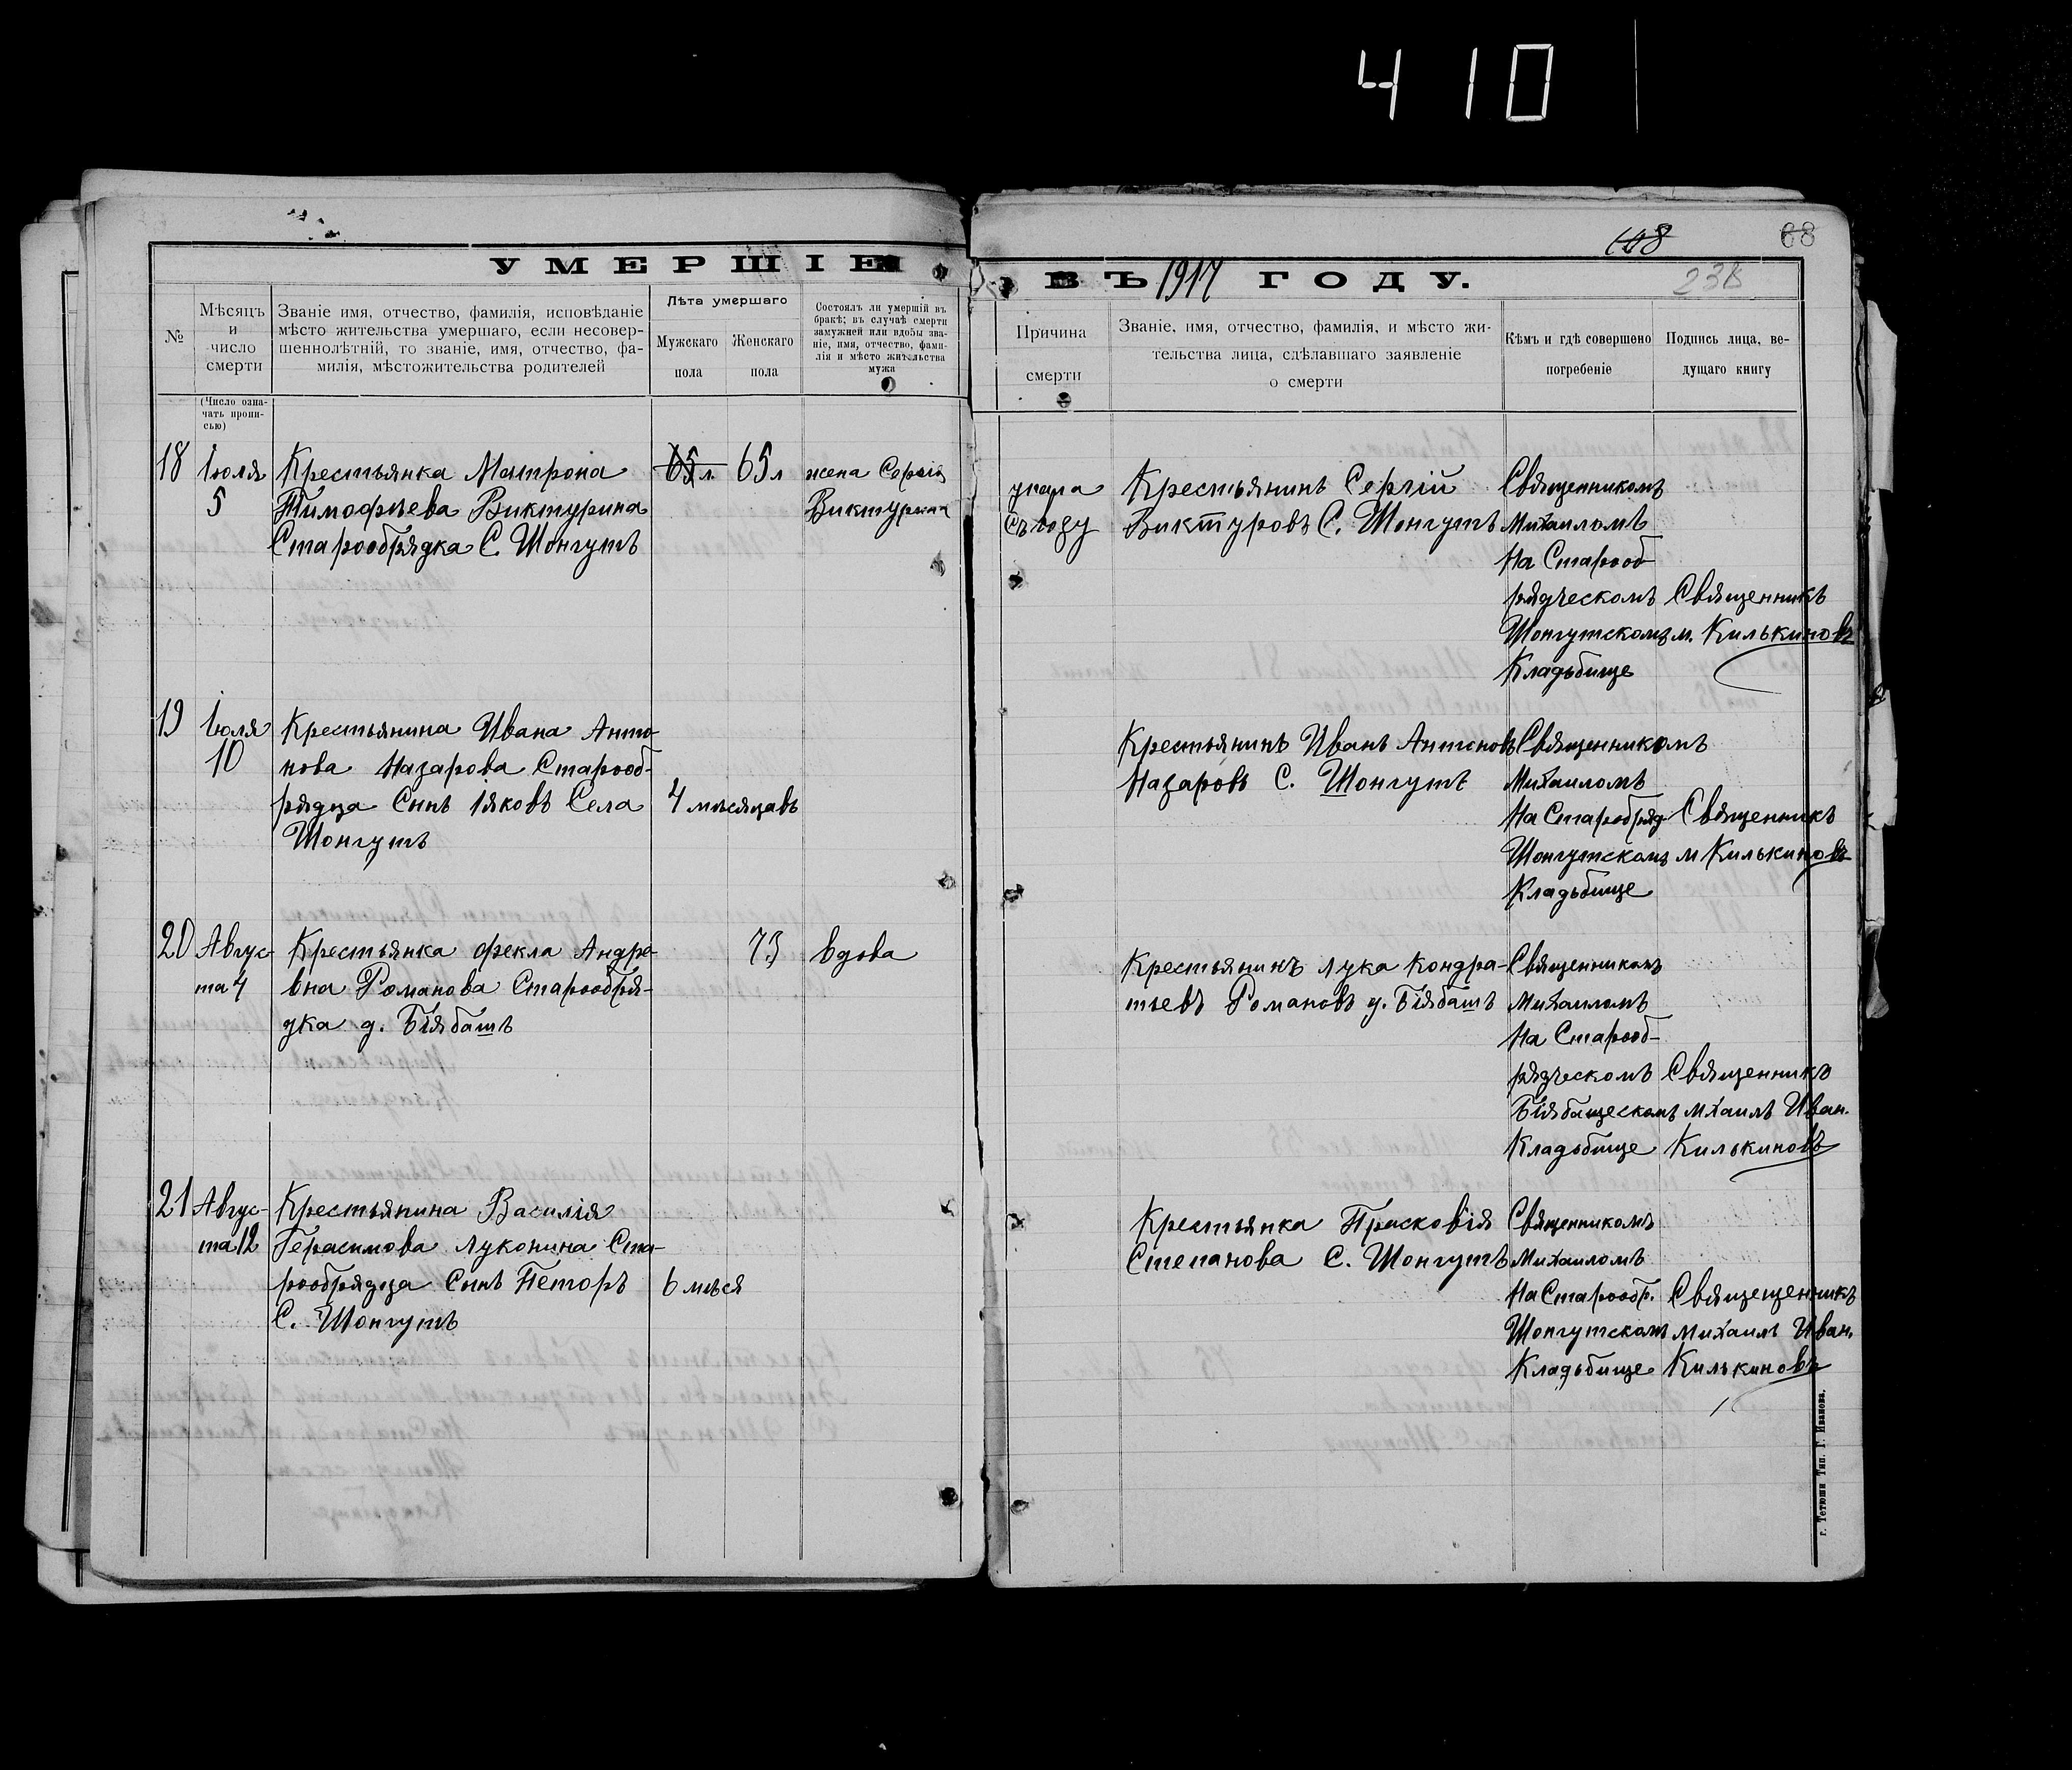 410
108
68
УМЕРШІЕ ВЪ 1917 ГОДУ.
23В
№
Мѣсяцъ
и
число
смерти
Званіе имя, отчество, фамилія, исповѣданіе
мѣсто жительства умершаго, если несовер-
шеннолѣтній, то званіе, имя, отчество, фа-
милія, мѣстожительства родителей
Лѣта умершаго
Мужскаго
пола
Женскаго
пола
Состоялъ ли умершій въ
бракѣ; въ случаѣ смерти
замужней или вдовы зва-
ніе, имя, отчество, фами-
лія и мѣсто жительства
мужа
Причина
смерти
Званіе, имя, отчество, фамилія, и мѣсто жи-
тельства лица, сдѣлавшаго заявленіе
о смерти
Кѣмъ и гдѣ совершено
погребеніе
Подпись лица, ве-
дущаго книгу
(Число озна-
чать пропи-
сью)
18
Іюля
5
Крестьянка Матрона
Тимофѣева Виктурина
Старообрядка С. Шонгутъ
65 л.
65 л
жена Сергія
Виктурина
съ воду
Крестьянинъ Сергій
Виктуровъ С. Шонгутъ
Священникомъ
Михаиломъ
На Старооб
рядческомъ
Шонгутскомъ
Кладьбище
Священникъ
м. Килькиновъ
19
Іюля
10
Крестьянина Ивана Анто-
нова Назарова Старооб-
рядца Сынъ Іяковъ Села
Шонгутъ
4 мѣсяцавъ
Крестьянинъ Иванъ Антоновъ
Назаровъ С. Шонгутъ
Священникомъ
Михаиломъ
На Старобряд.
Шонгутскомъ
Кладьбище
Священникъ
м Килькиновъ
20
Авгус-
та 4
Крестьянка фекла Андре-
вна Романова Старообря-
дка д. Біябашъ
73
вдова
Крестьянинъ лука Кондра-
тьевъ Романовъ д. Біябашъ
Священникомъ
Михаиломъ
На Старооб-
рядческомъ
Біябащескомъ
Кладьбище
Священникъ
мхаилъ Иван.
Килькиновъ
21
Авгус-
та 12
Крестьянина Василія
Герасимова луконина Ста-
рообрядца Сынъ Петоръ
С. Шонгутъ
6 мѣся
Крестьянка Прасковія
Степанова С. Шонгутъ
Священникомъ
Михаиломъ
На Старообр.
Шонгутскомъ
Кладьбище
Священникъ
Михаилъ Иван.
Килькиновъ
г. Тетюши Тип. Г. Иванова.